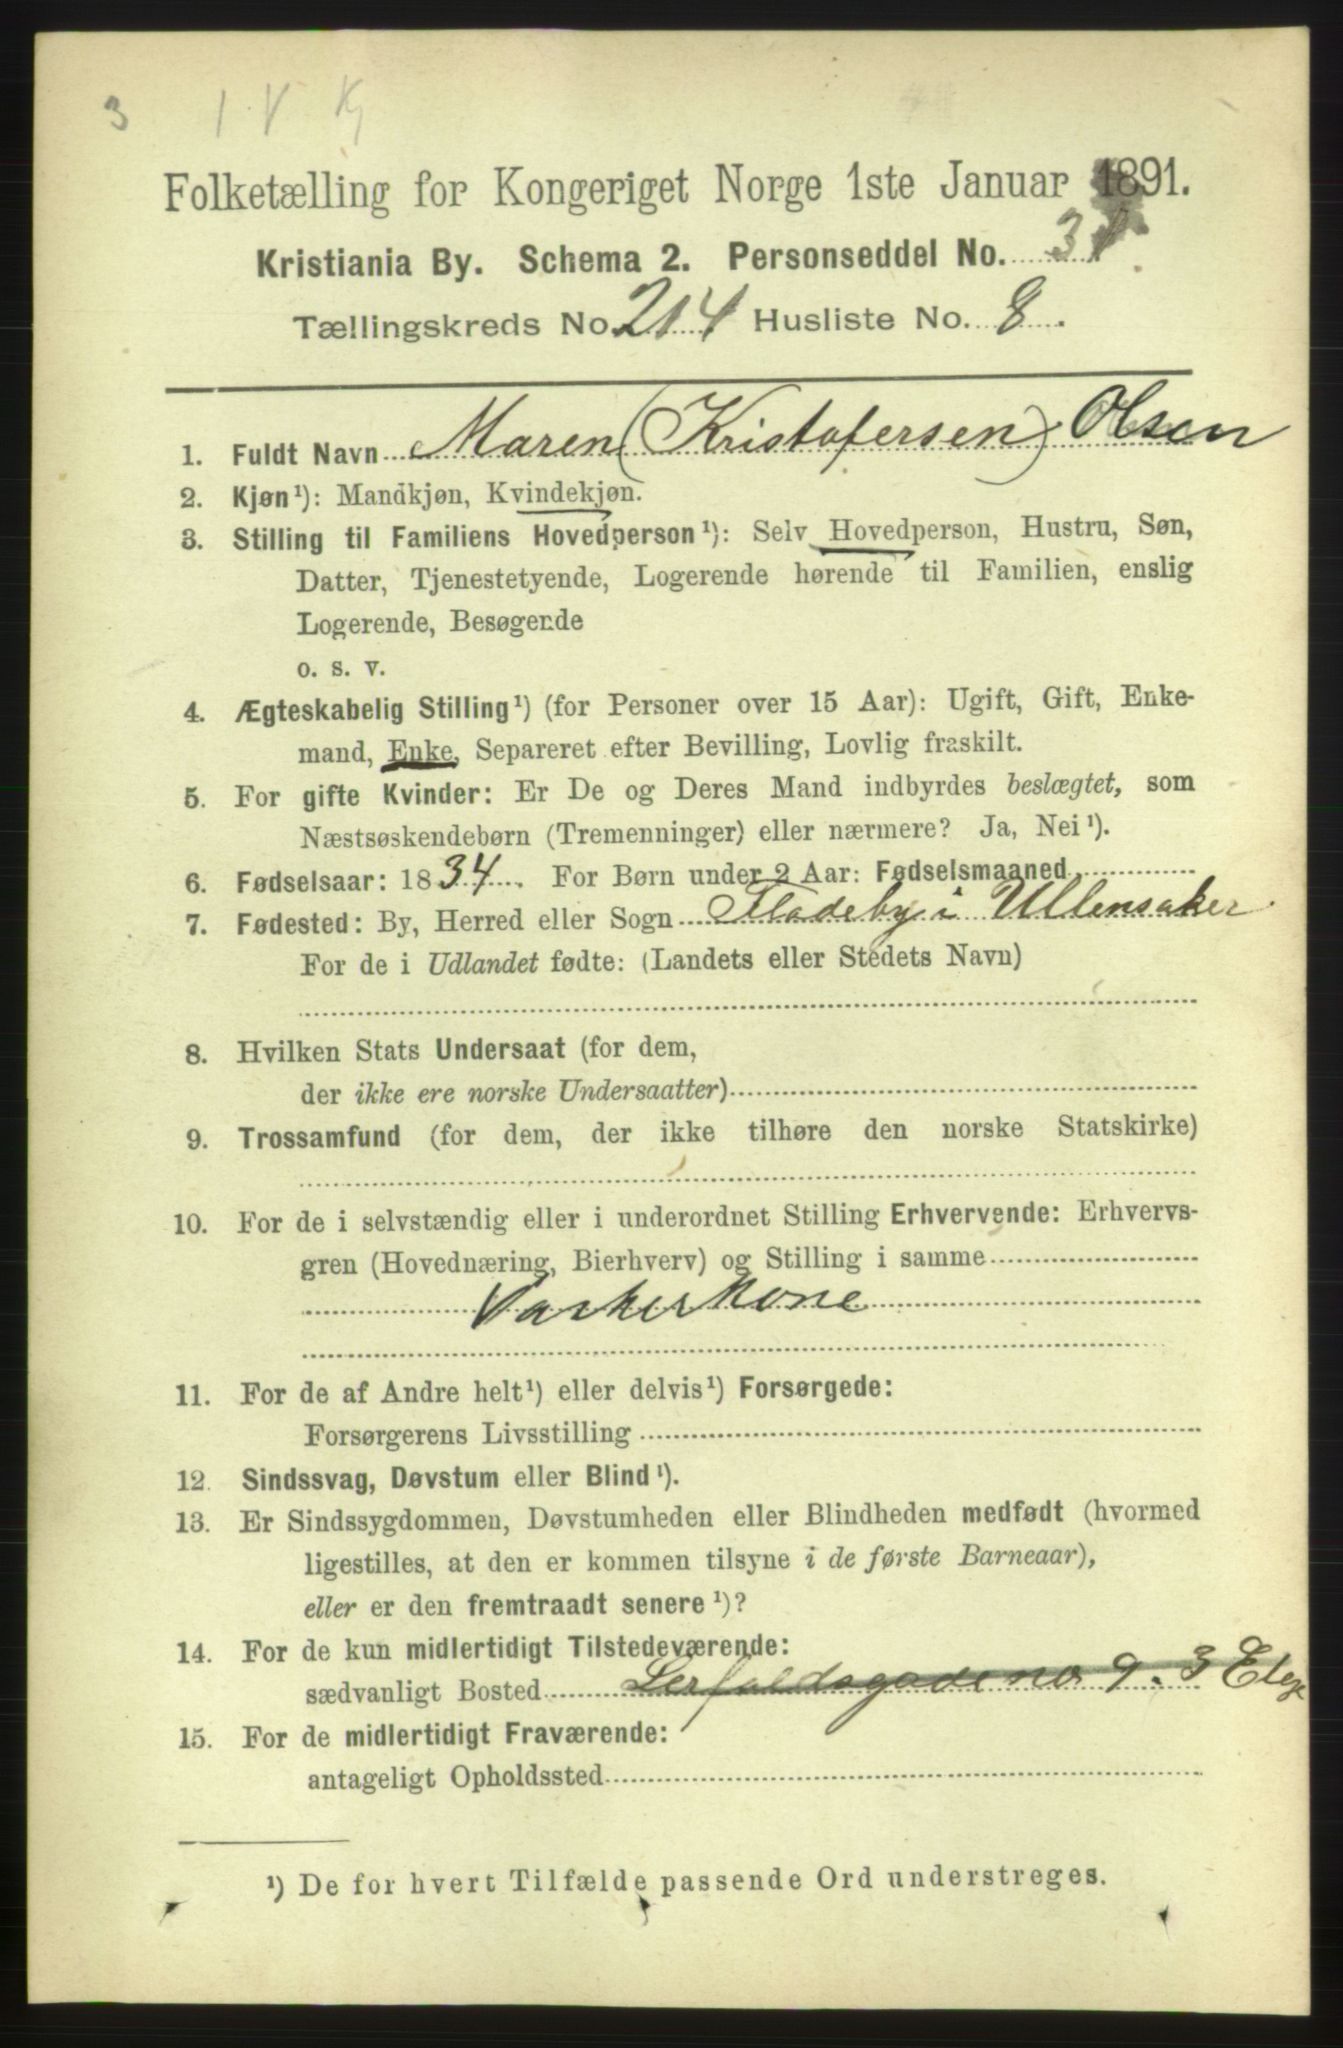 3 1 V K
Folketælling for Kongeriget Norge 1ste Januar 1891.
Kristiania By. Schema 2. Personseddel No. 31
Tællingskreds No. 214 Husliste No. 8.
1. Fuldt Navn Maren (Kristofersen) Olsen
2. Kjøn¹): Mandkjøn, Kvindekjøn.
3. Stilling til Familiens Hovedperson¹): Selv Hovedperson, Hustru, Søn,
Datter, Tjenestetyende, Logerende hørende til Familien, enslig
Logerende, Besøgende
o. s. v.
4. Ægteskabelig Stilling¹) (for Personer over 15 Aar): Ugift, Gift, Enke-
mand, Enke, Separeret efter Bevilling, Lovlig fraskilt.
5. For gifte Kvinder: Er De og Deres Mand indbyrdes beslægtet, som
Næstsøskendebørn (Tremenninger) eller nærmere? Ja, Nei¹).
6. Fødselsaar: 1834. For Børn under 2 Aar: Fødselsmaaned
7. Fødested: By, Herred eller Sogn Fladeby i Ullensaker
For de i Udlandet fødte: (Landets eller Stedets Navn)
8. Hvilken Stats Undersaat (for dem,
der ikke ere norske Undersaatter)
9. Trossamfund (for dem, der ikke tilhøre den norske Statskirke)
10. For de i selvstændig eller i underordnet Stilling Erhvervende: Erhvervs-
gren (Hovednæring, Bierhverv) og Stilling i samme
Vaskerkone
11. For de af Andre helt¹) eller delvis¹) Forsørgede:
Forsørgerens Livsstilling
12. Sindssvag, Døvstum eller Blind¹).
13. Er Sindssygdommen, Døvstumheden eller Blindheden medfødt (hvormed
ligestilles, at den er kommen tilsyne i de første Barneaar),
eller er den fremtraadt senere¹)?
14. For de kun midlertidigt Tilstedeværende:
sædvanligt Bosted Lerfaldsgade no 9. 3 Etage
15. For de midlertidigt Fraværende:
antageligt Opholdssted
¹) De for hvert Tilfælde passende Ord understreges.